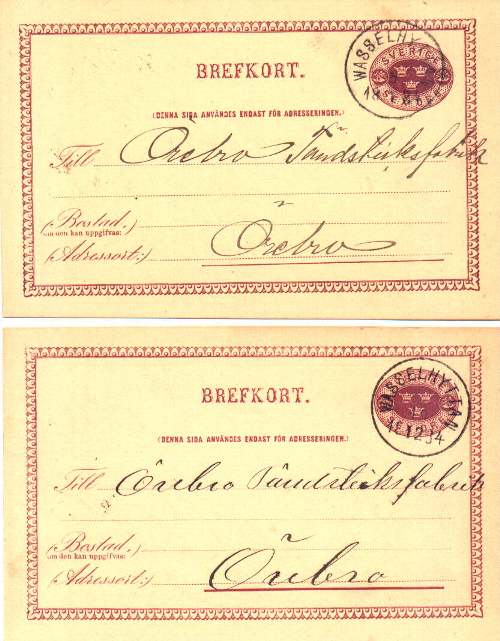 WASSELHY
SVERIGE
BREFKORT.
(DENNA SIDA ANVÄNDES ENDAST FÖR ADRESSERINGEN.)
Till Örebro Tändsticksfabrik
(Bostad,
om den kan uppgifvas:
Adressort:) Örebro
WASSELHYTTAN
BREFKORT.
12
(DENNA SIDA ANVÄNDES ENDAST FÖR ADRESSERINGEN.)
Till Örebro Tändsticksfabrik
(Bostad,
om den kan uppgifvas:
Adressort:) Örebro